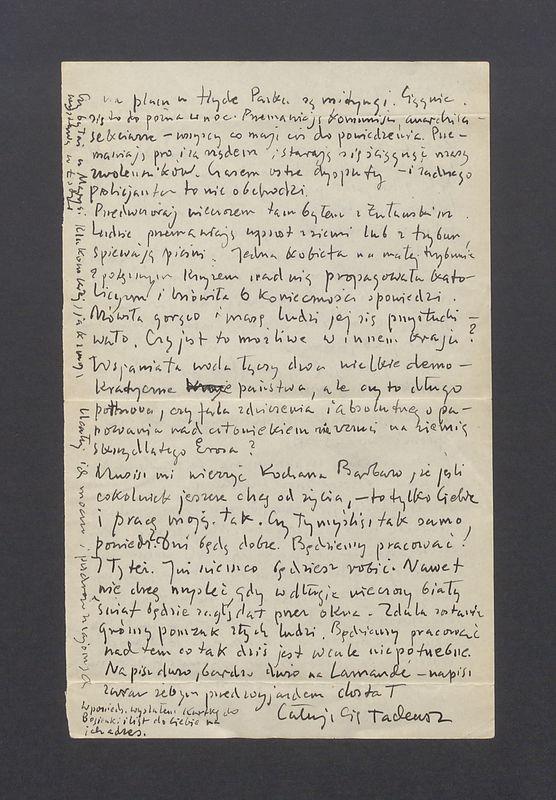 na placu w Hyde Parku są mityngi. Ciągnie
się to do późna w noc. Przemawiają komuniści anarchiści
sekciarze – wszyscy co mają coś do powiedzenia. Prze-
mawiają pro i za rządem i starają się ściągnąć masy
zwolenników. Czasem ostre dysputy – i żadnego
policjanta to nie obchodzi.
Przedwczoraj wieczorem tam byłem z Żuławskim.
Ludzie przemawiają wprost z ziemi lub z trybun,
śpiewają pieśni. Jedna kobieta na małej trybunie
z potężnym krzyżem nad nią propagowała kato-
licyzm i mówiła o konieczności spowiedzi.
Mówiła gorąco i masę ludzi jej się przysłuchi-
wało. Czy jest to możliwe w innem kraju?
Wspaniała woda łączy dwa wielkie demo-
kratyczne państwa, ale czy to długo
potrwa, czy fala zdziczenia i absolutnego pa-
nowania nad człowiekiem nie zrzuci na ziemię
skrzydlatego Erosa?
Musisz mi wierzyć Kochana Barbaro, że jeśli
cokolwiek jeszcze chcę od życia, – to tylko Ciebie
i pracę moją. Tak. Czy Ty myślisz tak samo,
powiedz? Dni będą dobre. Będziemy pracować!
i Ty też. Już nieco będziesz robić. Nawet
nie chcę myśleć gdy w długie wieczory biały
świat będzie zaglądał przez okna. Zdala zostanie
groźny pomruk złych ludzi. Będziemy pracować
nad tem co tak dziś jest wcale niepotrzebne.
Napisz dużo, bardzo dużo na Lamandé – napisz
zaraz żebym przed wyjazdem dostał
Całuję Cię Tadeusz
W poniedz. wysłałem kartkę do
Bosieńki i list do Ciebie na
ich adres.
Czy byłaś u Madzi Kłakowskiej, jak z moją
wystawą w Łodzi?
Uściskaj ich mocno i pozdrów znajomych